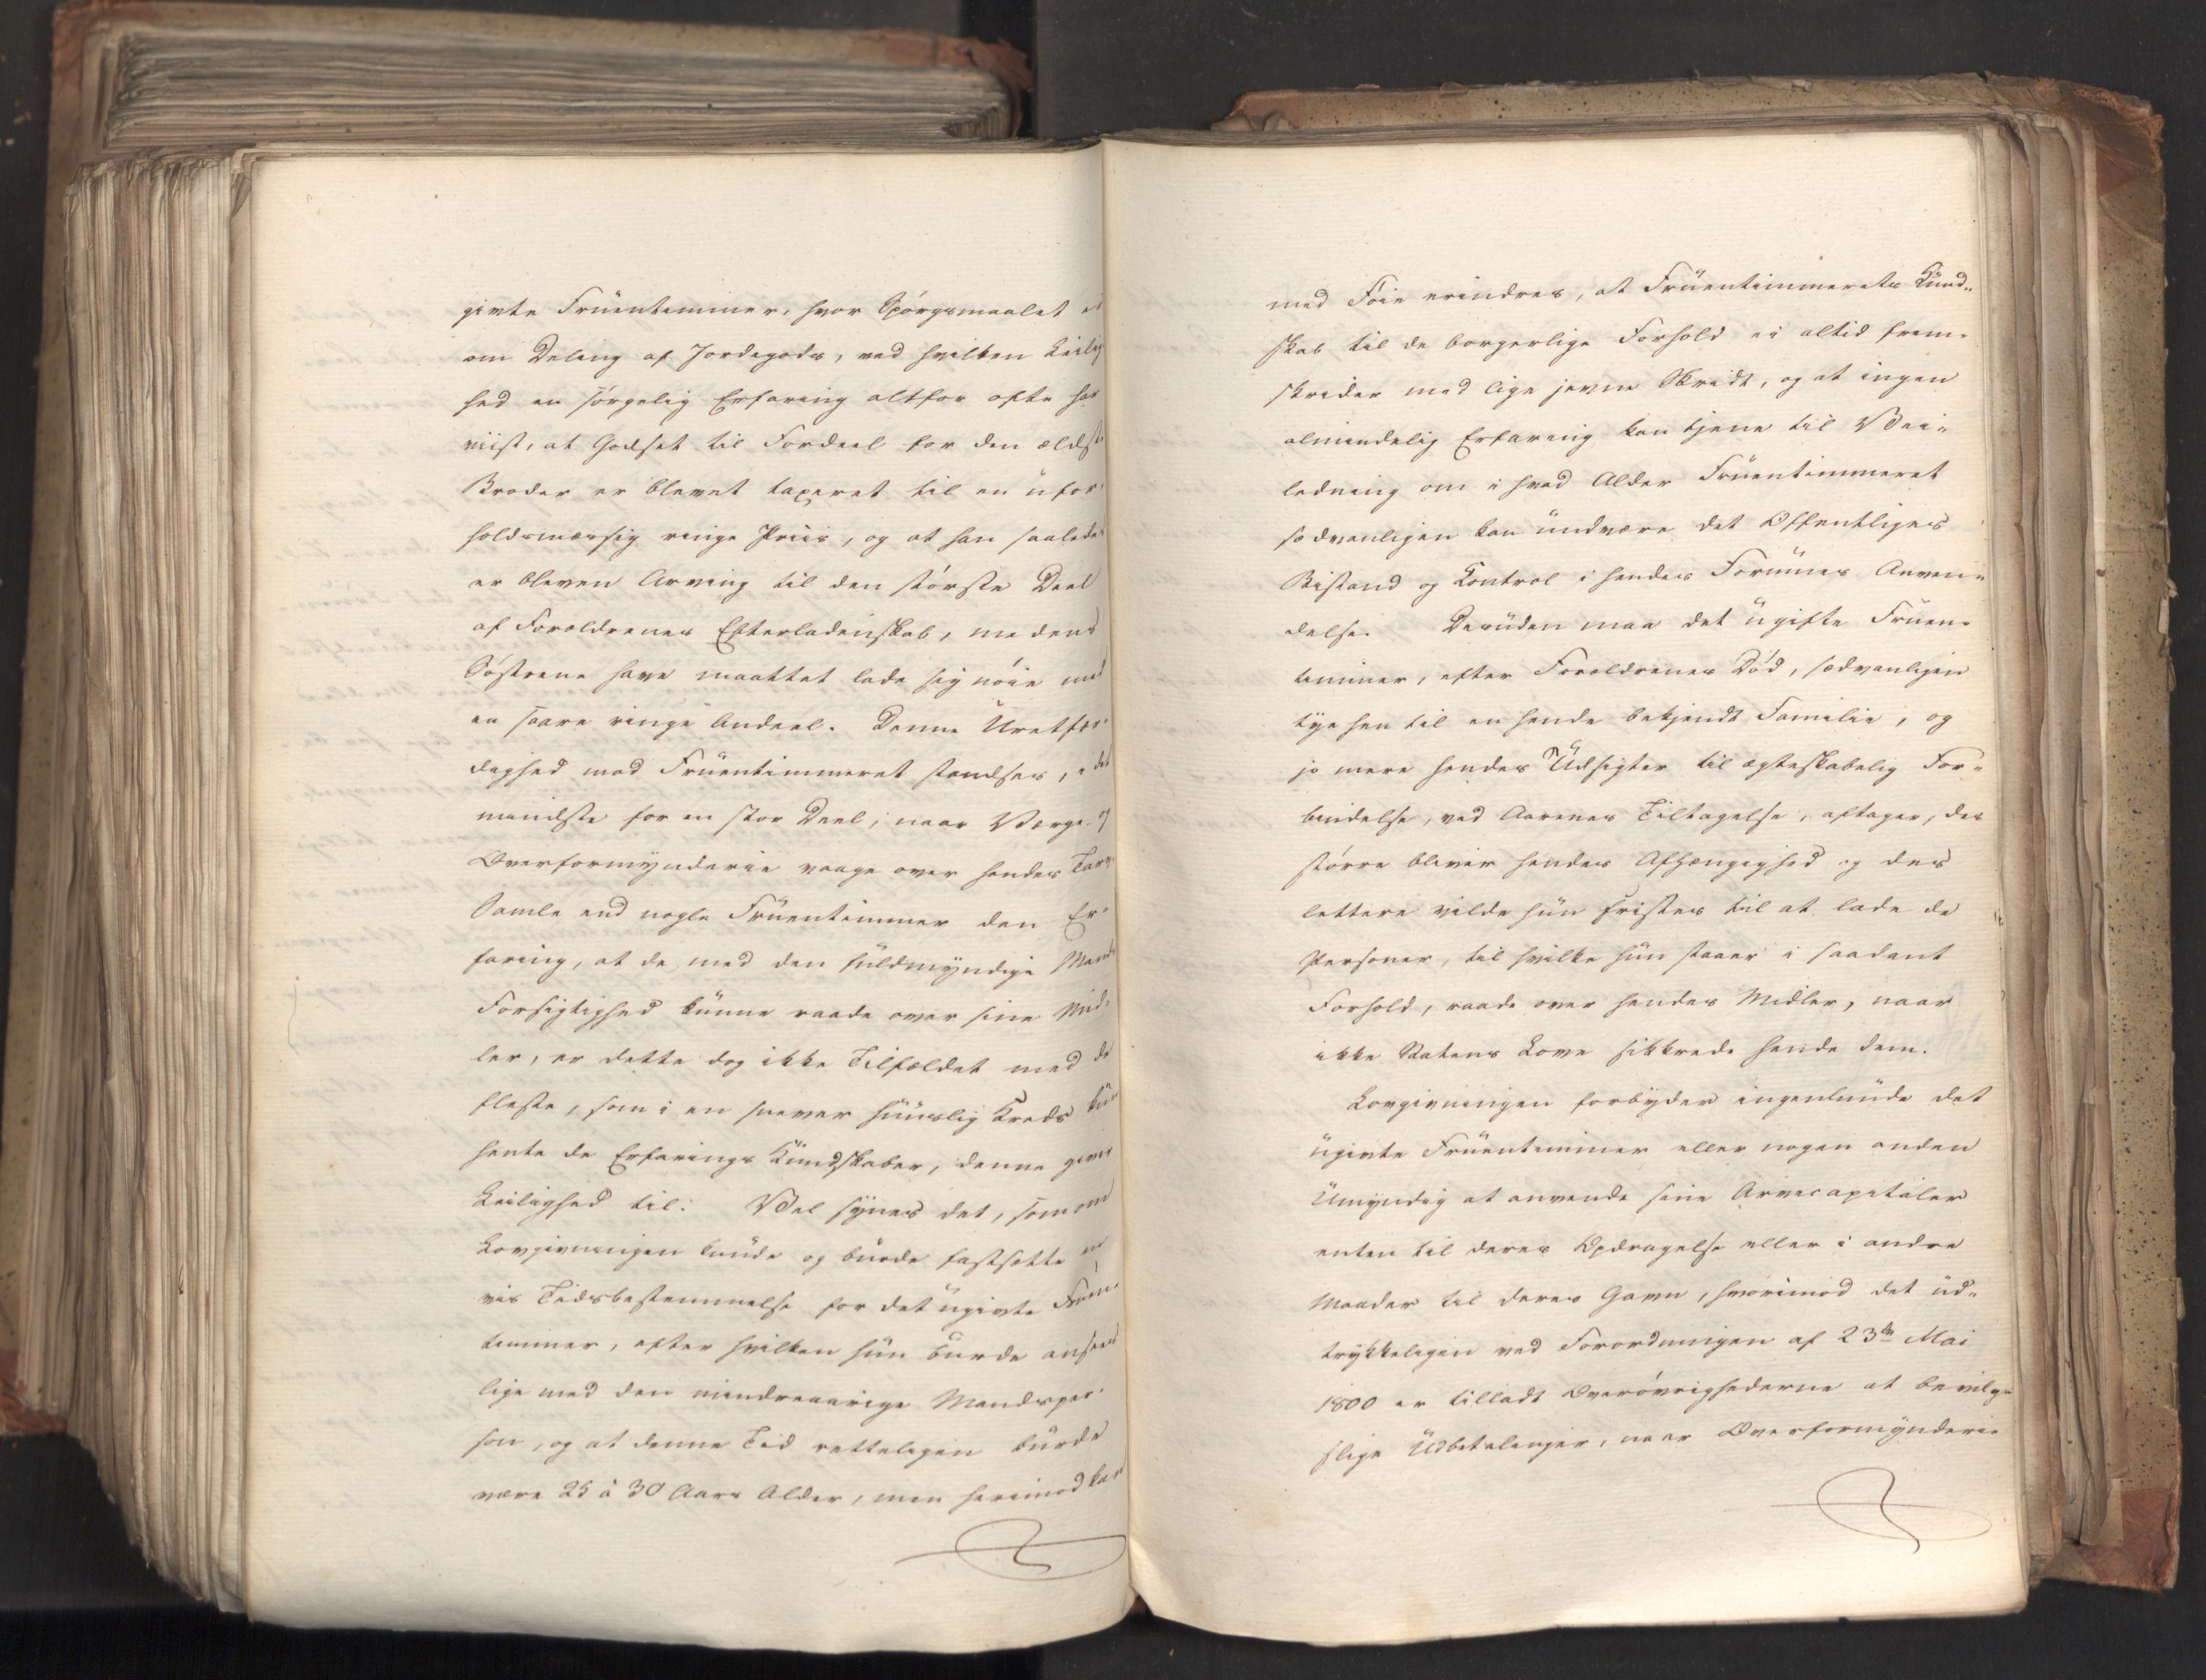 givte Fruentimmer, hvor Spørgsmaalet er
om Deling af Jordegods, ved hvilken Leilig
hed en sørgelig Erfaring altfor ofte har
viist, at Godset til Fordeel for den ældste
Broder er blevet taxeret til en ufor-
holdsmæssig ringe Priis, og at han saaledes
er bleven Arving til den største Deel
af Forældrenes Efterladenskab, medens
Søstrene have maattet lade sig nøie med
en saare ringe Andeel. Denne Uretfær-
dighed mod Fruentimmeret standses, i det
mindste for en stor Deel, naar Værge og
Overformynderie vaage over hendes Tarv.
Samle end nogle Fruentimmer den Er-
faring, at de med den fuldmyndige Mands
Forsigtighed kunne raade over sine Mid-
ler, er dette dog ikke Tilfældet med de
fleste, som i en snever huuslig Kreds kun
hente de Erfarings Kundskaber, denne giver
Leilighed til. Vel synes det, som om
Lovgivningen kunde og burde fastsætte en
vis Tidsbestemmelse for det ugivte Fruen-
timmer, efter hvilken hun burde ansees
lige med den mindreaarige Mandsper-
son, og at denne Tid rettelegen burde
være 25 à 30 Aars Alder, men herimod kan
med Føie erindres, at Fruentimmerets Kund-
skab til de borgerlige Forhold ei altid frem-
skrider med lige jevne Skridt, og at ingen
almindelig Erfaring kan tjene til Vei-
ledning om i hvad Alder Fruentimmeret
sædvanligen kan undvære det Offentliges
Bistand og Control i hendes Formues Anven-
delse. Desuden maa det ugifte Fruen-
timmer, efter Forældrenes Død, sædvanligen
tye hen til en hende bekjendt Familie, og
jo mere hendes Udsigter til ægteskabelig For-
bindelse, ved Aarenes Tiltagelse, aftager, des
større bliver hendes Afhængighed og des
lettere vilde hun fristes til at lade de
Personer, til hvilke hun staaer i saadant
Forhold, raade over hendes Midler, naar
ikke Statens Love sikkrede hende dem.
Lovgivningen forbyder ingenlunde det
ugivte Fruentimmer eller nogen anden
Umyndig at anvende sine Arvecapitaler
enten til deres Opdragelse eller i andre
Maader til deres Gavn, hvorimod det ud-
trykkeligen ved Forordningen af 23de Mai
1800 er tilladt Overøvrighederne at bevilge
slige Udbetalinger, naar Overformynderie